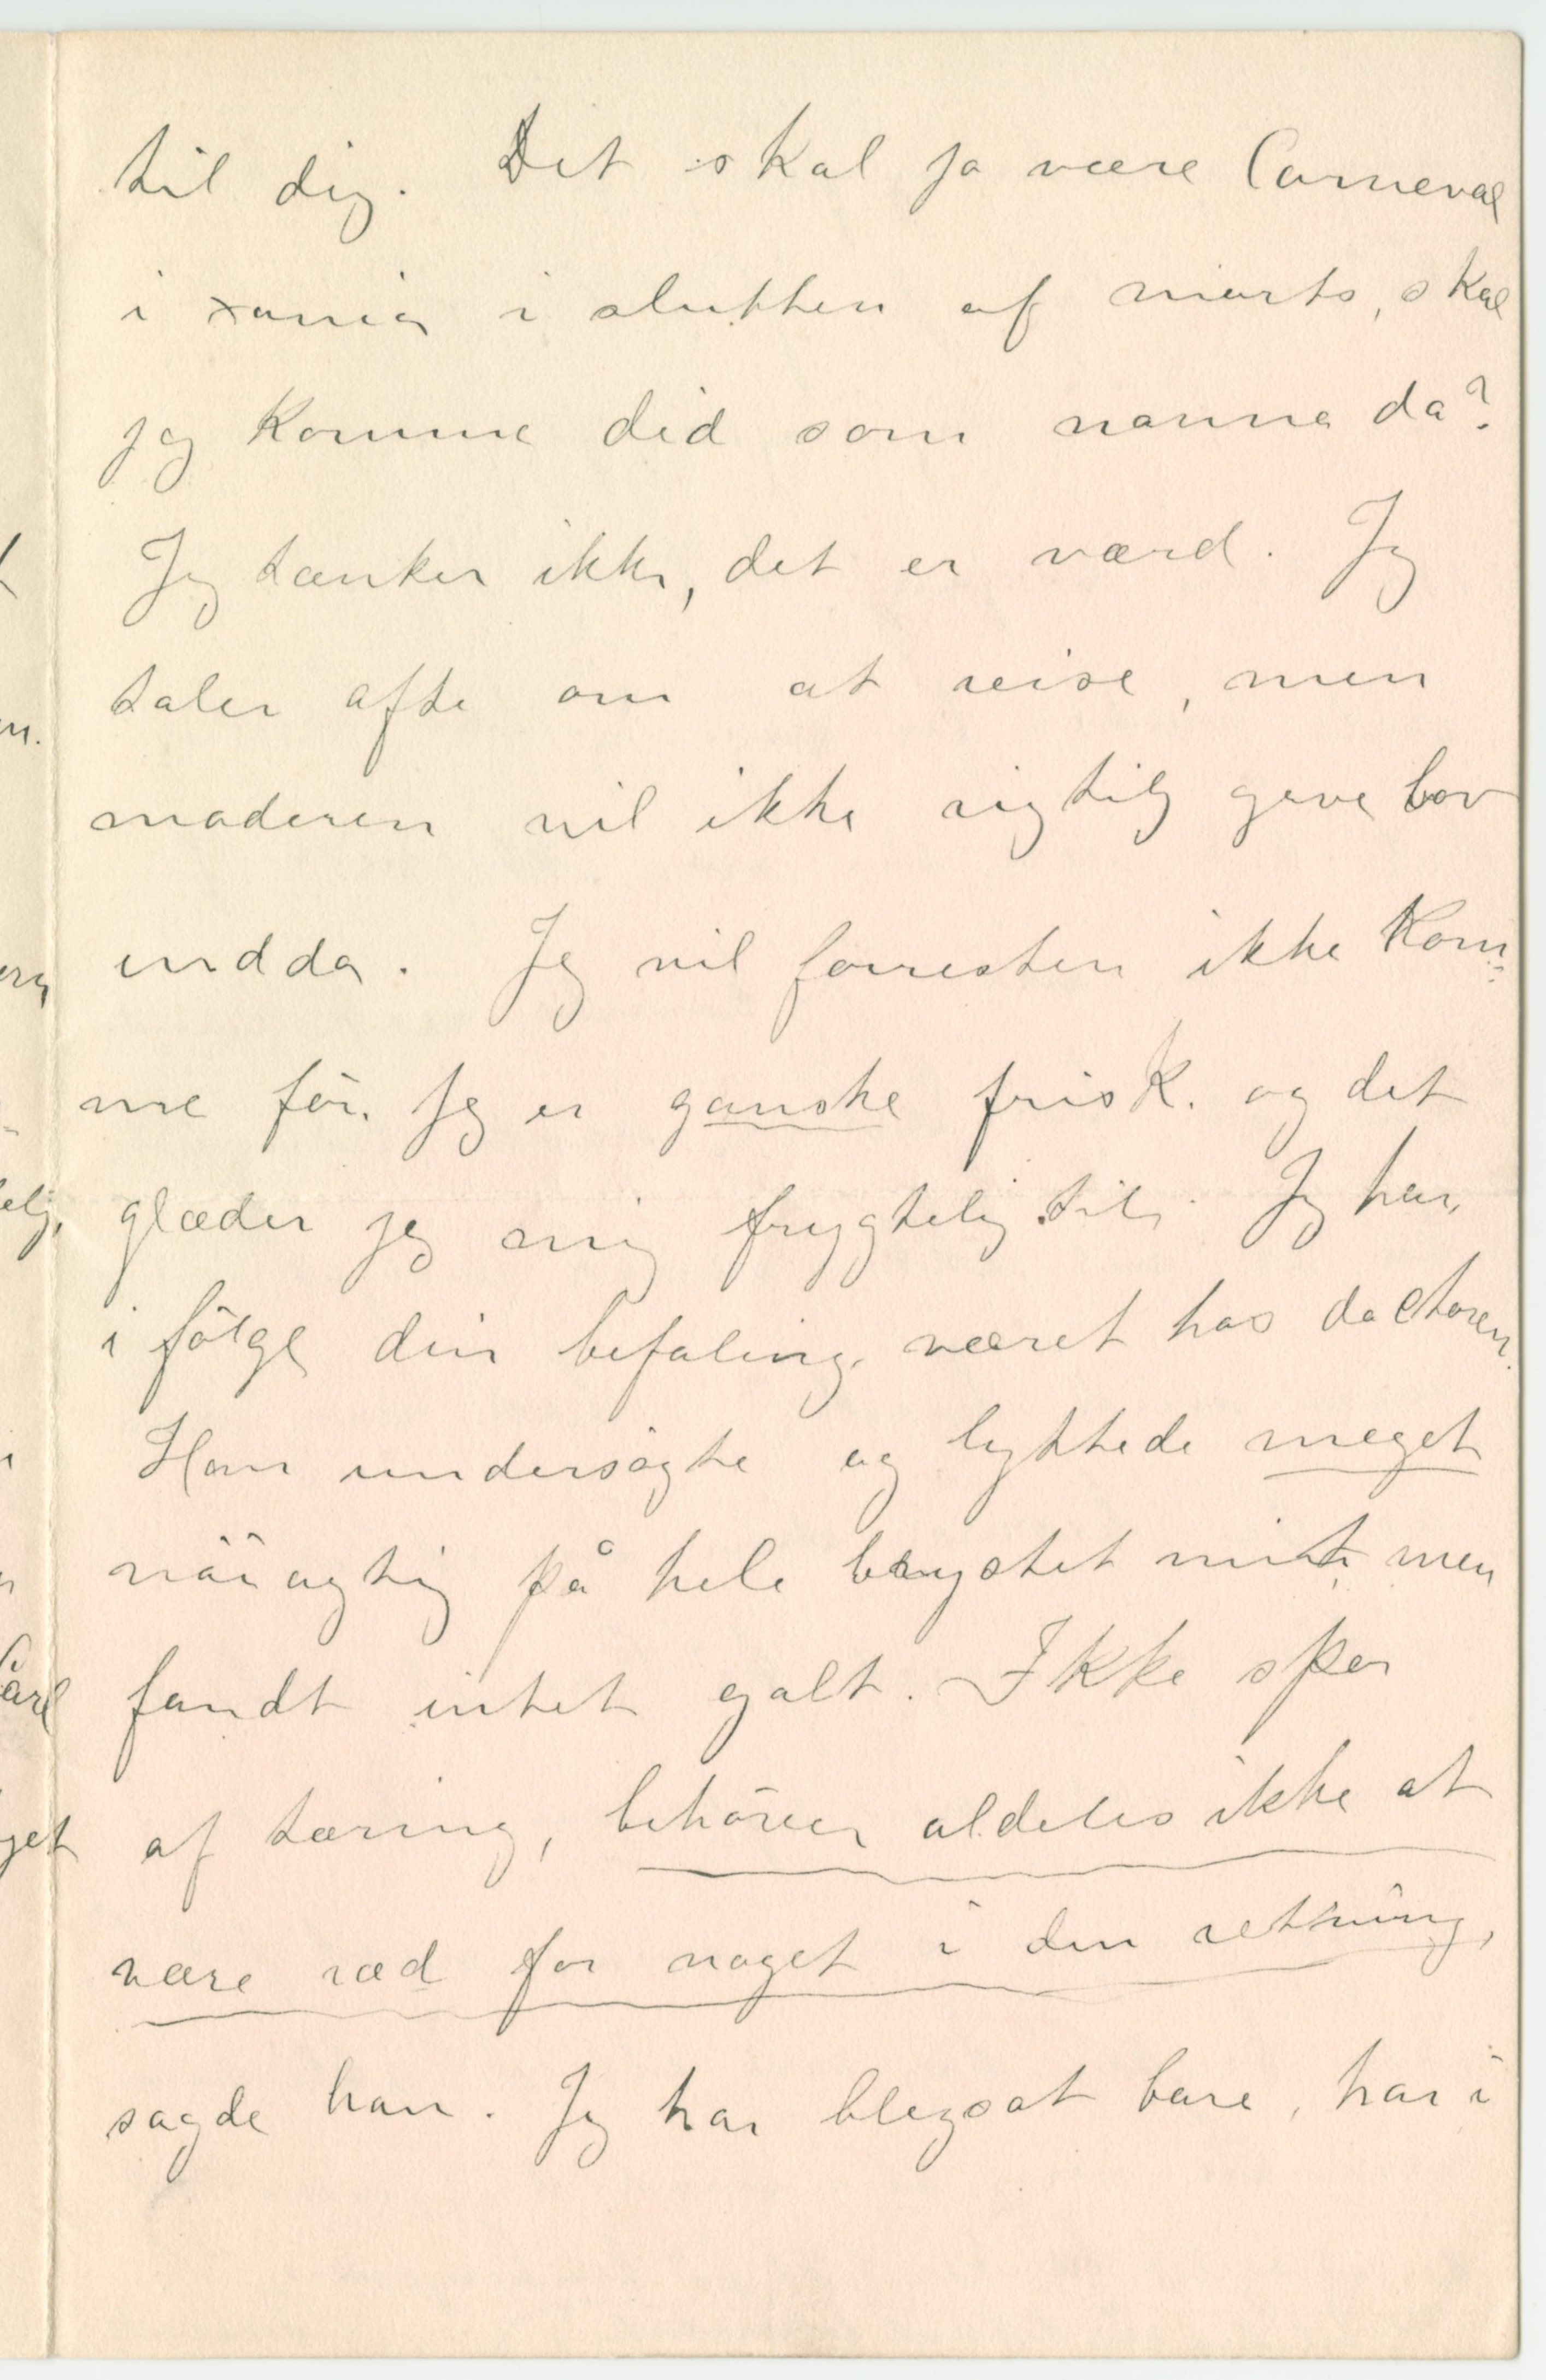 til dig. Det skal ja være Carneval
i xania i slutten af marts, skal
jeg komme did som nanna da?
Jeg tænker ikke, det er værd. Jeg
taler ofte om at reise, men
moderen vil ikke rigtig give lov
endda. Jeg vil forresten ikke kom-
me før. Jeg er ganske frisk. og det
glæder jeg mig frygtelig til. Jeg har,
i følge din befaling, været hos doctoren.
Han undersøgte og lyttede meget
nöiagtig på hele brystet mit, men
fandt intet galt. Ikke spor
af tæring, behøver aldeles ikke at
være ræd for noget i den retning,
sagde han. Jeg har blegsot bare, har i